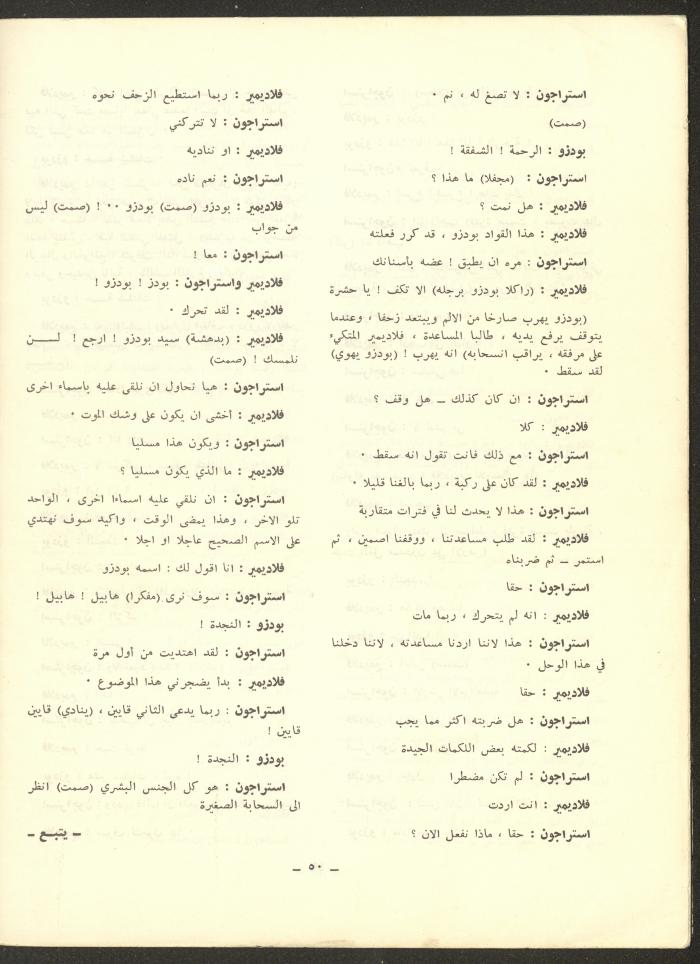 استراجون : لا تصغ له ، نم ٠
(صمت)
بودزو : الرحمة ! الشفقة !
استراجون : (مجفلا) ما هذا ؟
فلاديمير : هل نمت ؟
فلاديمير : هذا القواد بودزو ، قد كرر فعلته
استراجون : مره ان يطبق ! عضه باسنانك
فلاديمير : (راكلا بودزو برجله) الا تكف ! يا حشرة
(بودزو يهرب صارخا من الالم ويبتعد زحفا ، وعندما
يتوقف يرفع يديه ، طالبا المساعدة ، فلاديمير المتكيء
على مرفقه ، يراقب انسحابه) انه يهرب ! (بودزو يهوي)
لقد سقط ٠
استراجون : ان كان كذلك ــ هل وقف ؟
فلاديمير : كلا
استراجون : مع ذلك فانت تقول انه سقط ٠
فلاديمير : لقد كان على ركبة ، ربما بالغنا قليلا ٠
استراجون : هذا لا يحدث لنا في فترات متقاربة
فلاديمير : لقد طلب مساعدتنا ، ووقفنا اصمين ، ثم
استمر ــ ثم ضربناه
استراجون : حقا
فلاديمير : انه لم يتحرك ، ربما مات
استراجون : هذا لاننا اردنا مساعدته ، لاننا دخلنا
في هذا الوحل ٠
فلاديمير : حقا
استراجون : هل ضربته اكثر مما يجب
فلاديمير : لكمته بعض اللكمات الجيدة
استراجون : لم تكن مضطرا
فلاديمير : انت اردت
استراجون : حقا ، ماذا نفعل الان ؟
فلاديمير : ربما استطيع الزحف نحوه
استراجون : لا تتركني
فلاديمير : او نناديه
استراجون : نعم ناده
فلاديمير : بودزو (صمت) بودزو ٠٠ ! (صمت) ليس
من جواب
استراجون : معا !
فلاديمير واستراجون : بودز ! بودزو !
فلاديمير : لقد تحرك ٠
فلاديمير : (بدهشة) سيد بودزو ! ارجع ! لــــن
نلمسك ! (صمت)
استراجون : هيا نحاول ان نلقي عليه باسماء اخرى
فلاديمير : أخشى ان يكون على وشك الموت ٠
استراجون : ويكون هذا مسليا
فلاديمير : ما الذي يكون مسليا ؟
استراجون : ان نلقي عليه اسماءا اخرى ، الواحد
تلو الاخر ، وهذا يمضى الوقت ، واكيد سوف نهتدي
على الاسم الصحيح عاجلا او اجلا ٠
فلاديمير : انا اقول لك : اسمه بودزو
استراجون : سوف نرى (مفكرا) هابيل ! هابيل !
بودزو : النجدة !
استراجون : لقد اهتديت من أول مرة
فلاديمير : بدأ يضجرني هذا الموضوع ٠
استراجون : ربما يدعى الثاني قايين ، (ينادي) قايين
قايين !
بودزو : النجدة !
استراجون : هو كل الجنس البشري (صمت) انظر
الى السحابة الصغيرة
ــ يتبـع ــ
ــ ٥٠ ــ